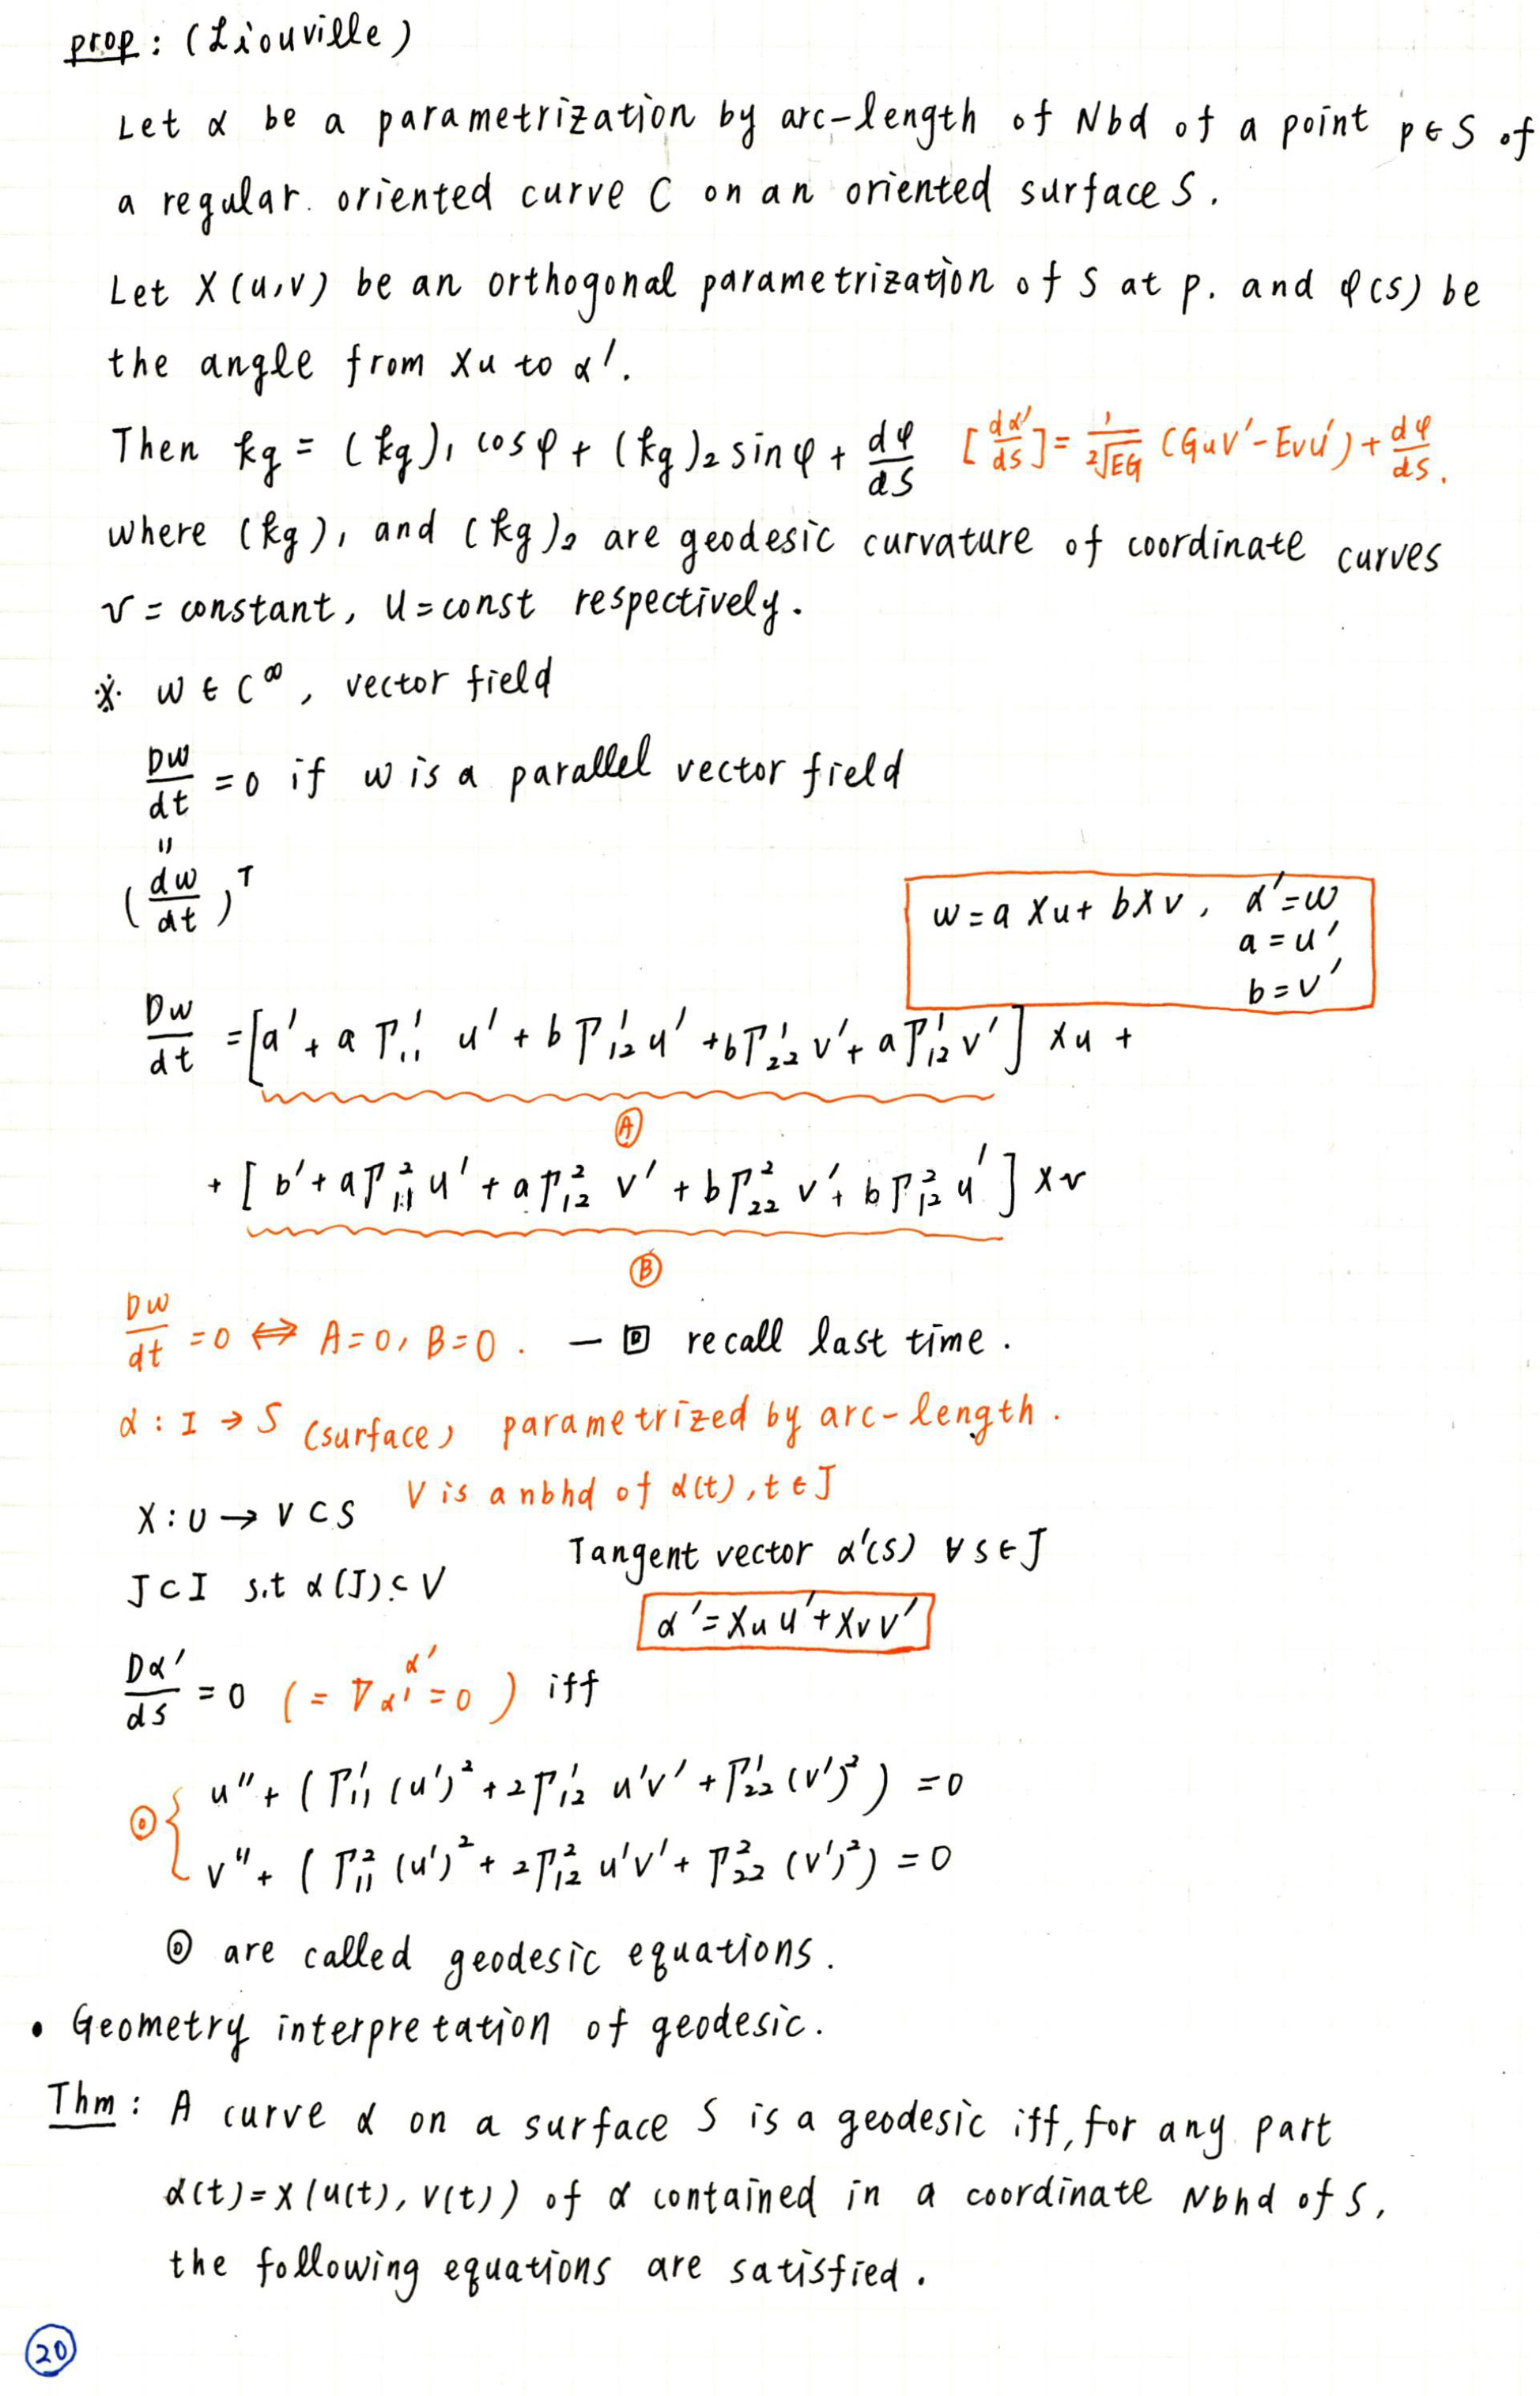 prop : (Liouville)
Let α be a parametrization by arc-length of Nbd of a point p∈S of
a regular. oriented curve C on an oriented surface S.
Let X(u,v) be an orthogonal parametrization of S at p. and φ(s) be
the angle from Xu to α'.
Then kg = (kg)₁ cosφ + (kg)₂ sinφ + dφ/ds [dα'/ds] = 1/(2√EG) (Guv' - Evu') + dφ/ds.
where (kg)₁ and (kg)₂ are geodesic curvature of coordinate curves
v = constant, u = const respectively.
※ w ∈ C^∞, vector field
Dw/dt = 0 if w is a parallel vector field
"
(dw/dt)^T
w = a Xu + bXv, α' = w
a = u'
b = v'
Dw/dt = [a' + a Γ₁₁¹ u' + b Γ₁₂¹ u' + bΓ₂₂¹ v' + aΓ₁₂¹ v'] Xu +
Ⓐ
+ [b' + aΓ₁₁² u' + aΓ₁₂² v' + bΓ₂₂² v' + bΓ₁₂² u'] Xv
Ⓑ
Dw/dt = 0 ⇔ A=0, B=0. — 回 recall last time.
α : I → S (surface) parametrized by arc-length.
X : U → V ⊂ S V is a nbhd of α(t), t ∈ J
J ⊂ I s.t α(J) ⊂ V Tangent vector α'(s) ∀ s ∈ J
α' = Xu u' + Xv v'
Dα'/ds = 0 (= ∇α' α' = 0) iff
⊙ { u'' + (Γ₁₁¹ (u')² + 2Γ₁₂¹ u'v' + Γ₂₂¹ (v')²) = 0
v'' + (Γ₁₁² (u')² + 2Γ₁₂² u'v' + Γ₂₂² (v')²) = 0
⊙ are called geodesic equations.
• Geometry interpretation of geodesic.
Thm : A curve α on a surface S is a geodesic iff, for any part
α(t) = X(u(t), v(t)) of α contained in a coordinate Nbhd of S,
the following equations are satisfied.
20